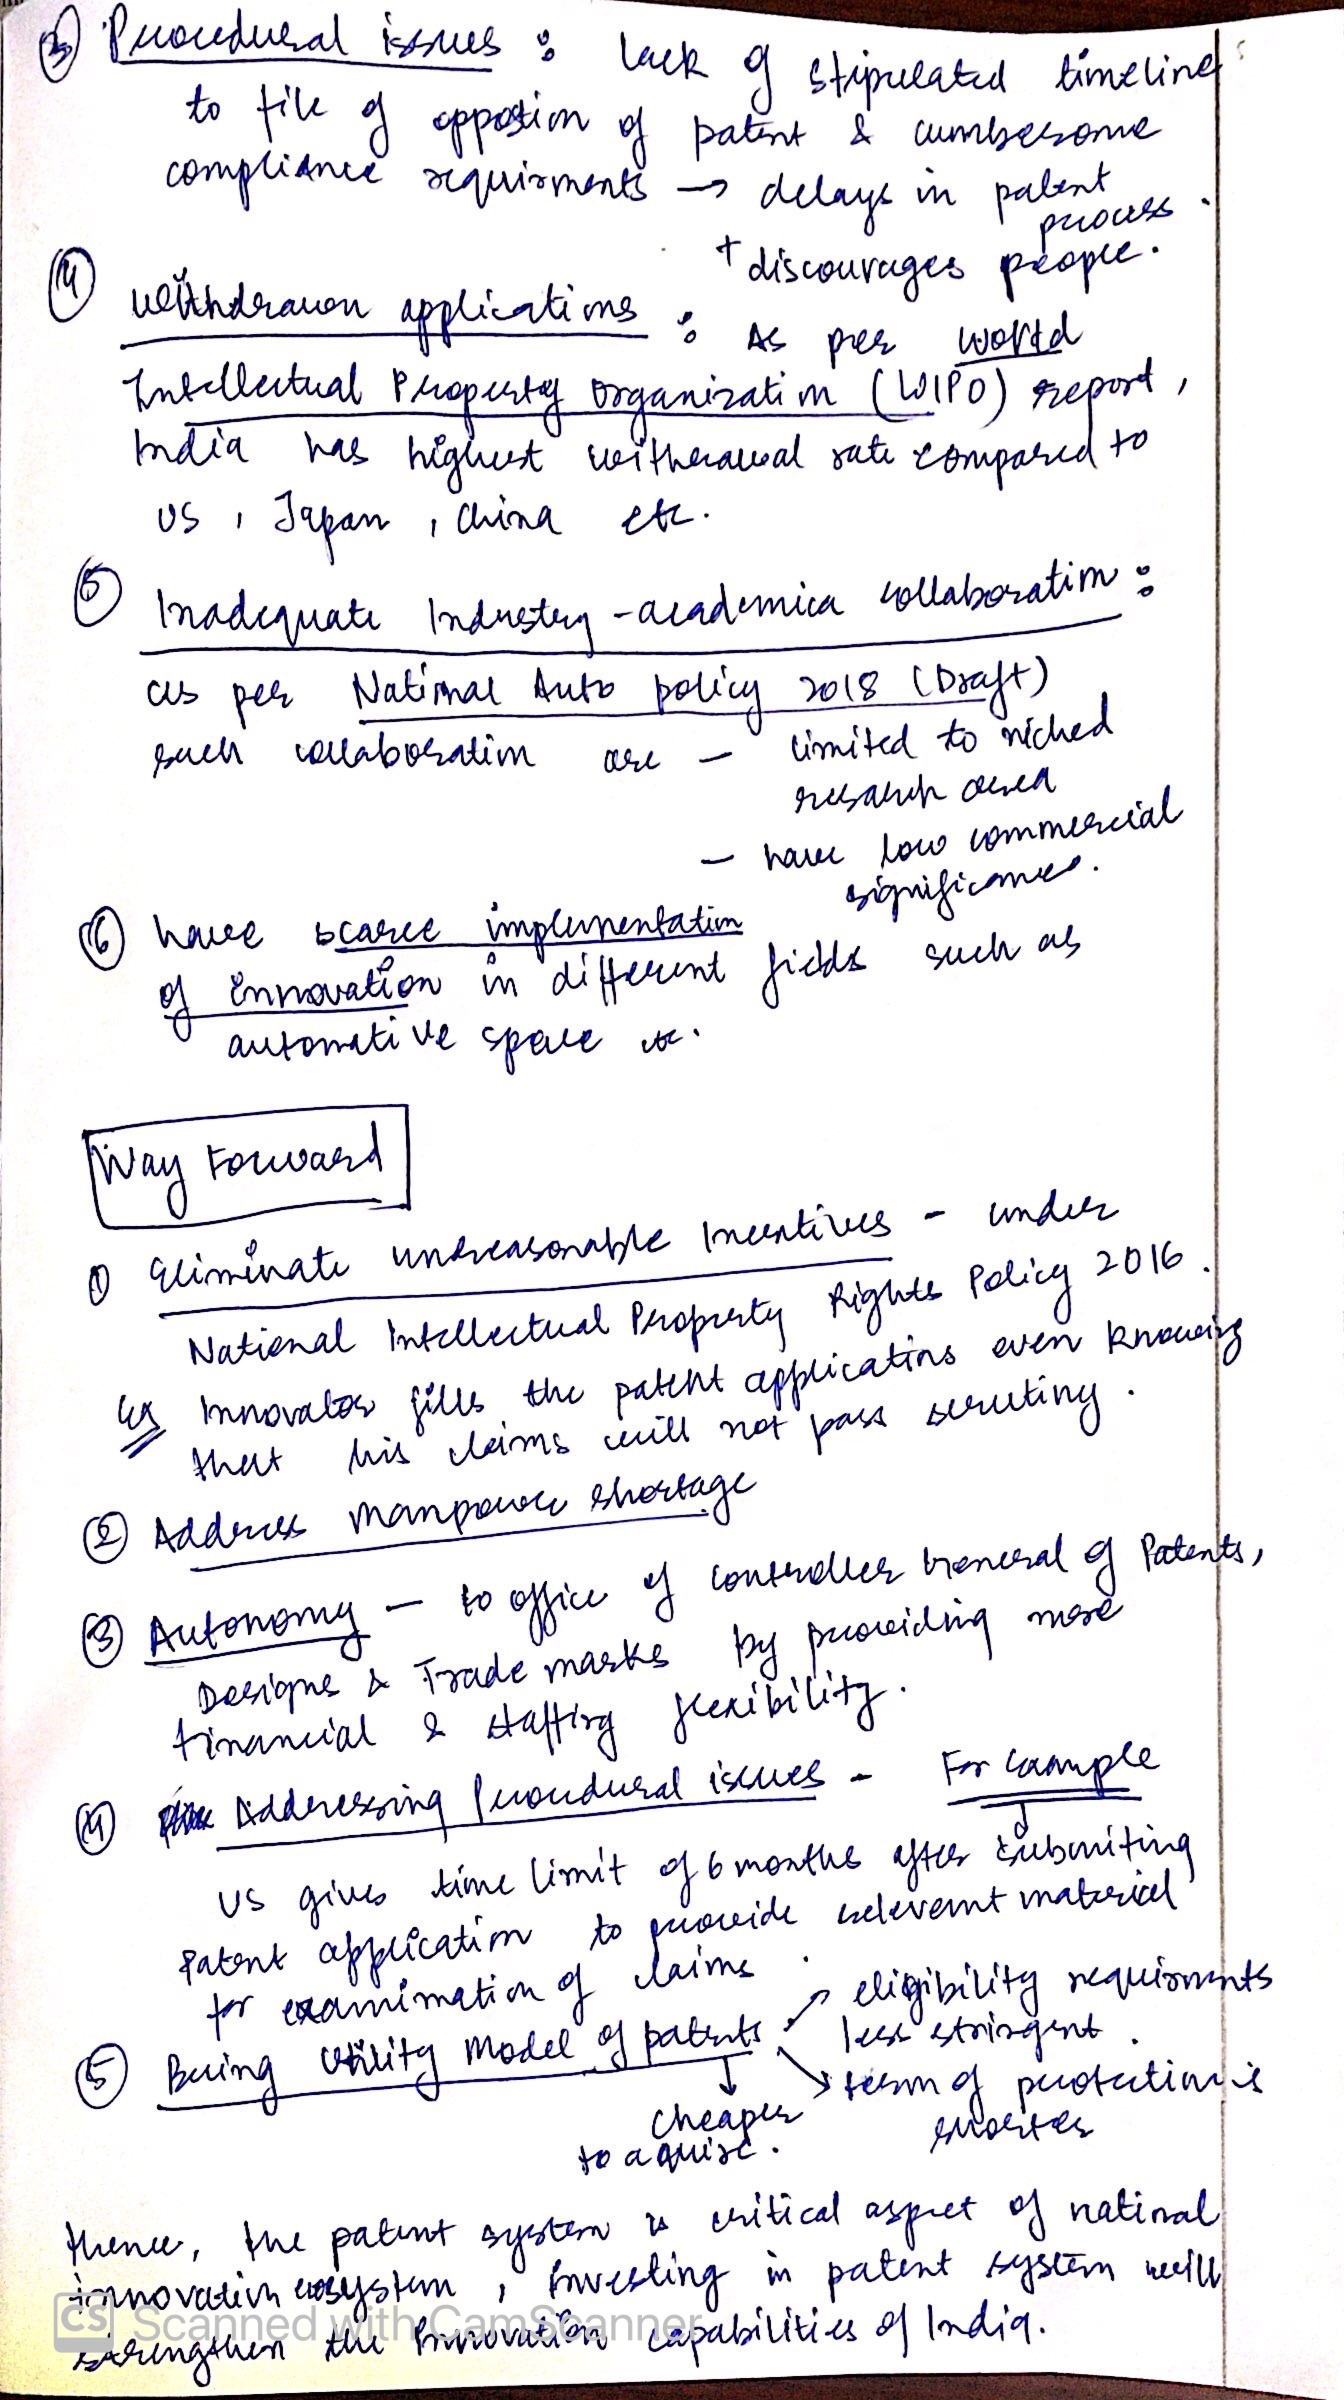 ③ Procedural issues : lack of stipulated timelines
to file of opposition of patent & cumbersome
compliance requirments → delays in patent
process.
+ discourages people.
④ Withdrawn applications : As per World
Intellectual Property Organization (WIPO) report,
India has highest witherawal rate compared to
US, Japan, China etc.
⑤ Inadequate Industry-academica collaboration :
as per National Auto policy 2018 (Draft)
such collaboration are – limited to niched
research area
– have low commercial
significance.
⑥ have scarce implementation
of innovation in different fields such as
automative space etc.
Way Forward
① Eliminate unreasonable Incentives - under
National Intellectual Property Rights Policy 2016.
Eg Innovator fills the patent applications even knowing
that his claims will not pass scrutiny.
② Address manpower shortage
③ Autonomy – to office of Controller General of Patents,
Designs & Trade marks by providing more
financial & staffing flexibility.
④ Addressing Procedural issues - For example
US gives time limit of 6 months after submiting
Patent application to provide relevant material
for examination of claims.
⑤ Being Utility Model of patents → eligibility requirments
less stringent.
↓ → term of protection is
cheaper shorter
to aquire.
Hence, the patent system is critical aspect of national
innovation ecosystem, investing in patent system will
strengthen the innovation capabilities of India.
CS Scanned with CamScanner